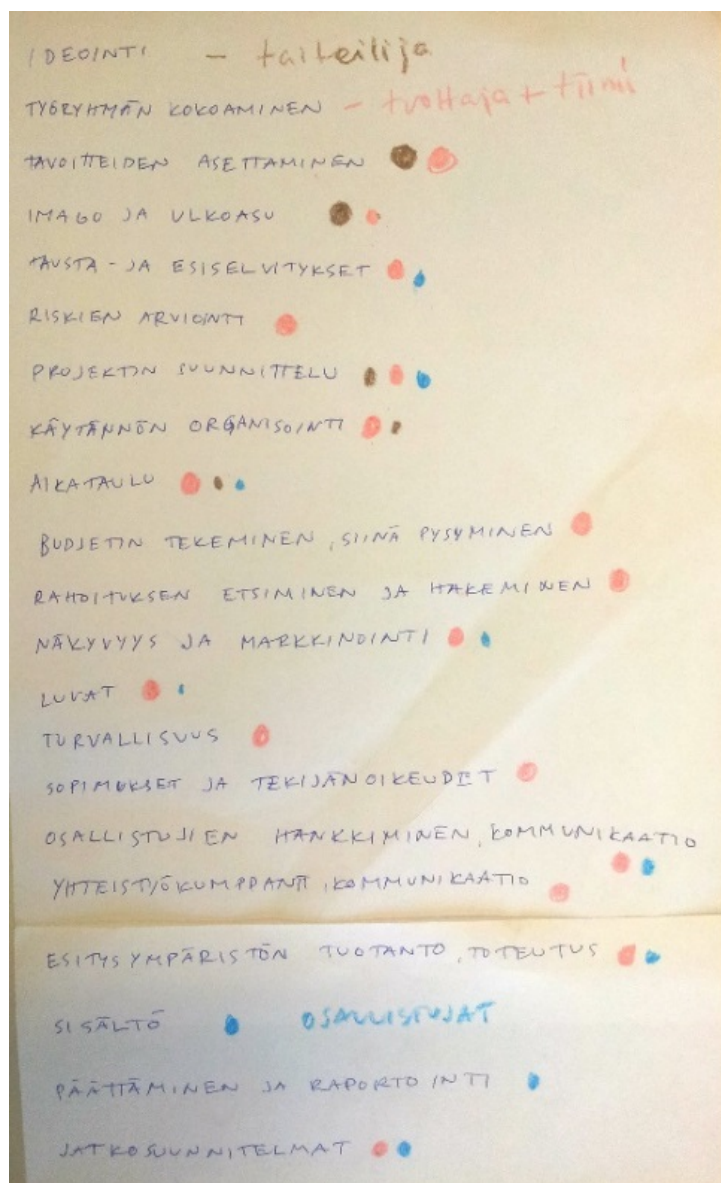 IDEOINTI - taiteilija
TYÖRYHMÄN KOKOAMINEN - tuottaja + tiimi
TAVOITTEIDEN ASETTAMINEN
IMAGO JA ULKOASU
TAUSTA- JA ESISELVITYKSET
RISKIEN ARVIOINTI
PROJEKTIN SUUNNITTELU
KÄYTÄNNÖN ORGANISOINTI
AIKATAULU
BUDJETIN TEKEMINEN, SIINÄ PYSYMINEN
RAHOITUKSEN ETSIMINEN JA HAKEMINEN
NÄKYVYYS JA MARKKINOINTI
LUVAT
TURVALLISUUS
SOPIMUKSET JA TEKIJÄNOIKEUDET
OSALLISTUJIEN HANKKIMINEN, KOMMUNIKAATIO
YHTEISTYÖKUMPPANIT, KOMMUNIKAATIO
ESITYSYMPÄRISTÖN TUOTANTO, TOTEUTUS
SISÄLTÖ OSALLISTUJAT
PÄÄTTÄMINEN JA RAPORTOINTI
JATKOSUUNNITELMAT